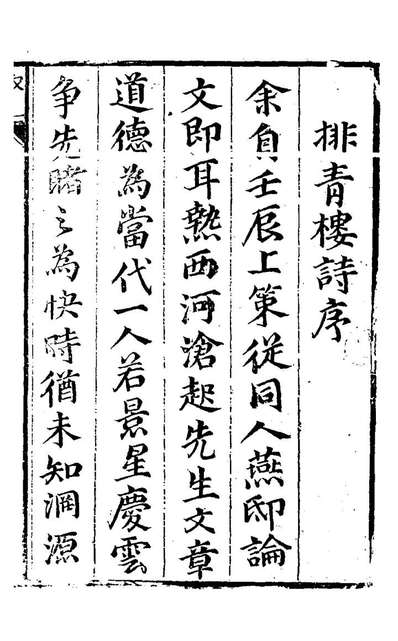 排青樓詩序
余負壬辰上策從同人燕邸論
文即耳熱西河滄起先生文章
道德為當代一人若景星慶雲
爭先睹之為快時猶未知淵源